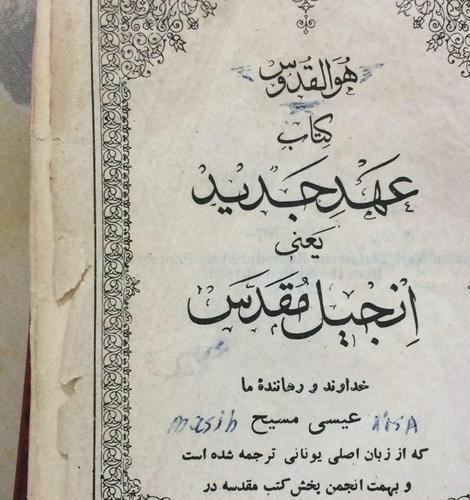 هُوَ القُدّوس
کتابِ
عَهدِ جَدید
یَعنی
اِنجیلِ مُقَدَّس
خداوند و رهانندهٔ ما
masih عیسی مسیح
که از زبان اصلی یونانی ترجمه شده است
و بهمت انجمن پخش کتب مقدسه در